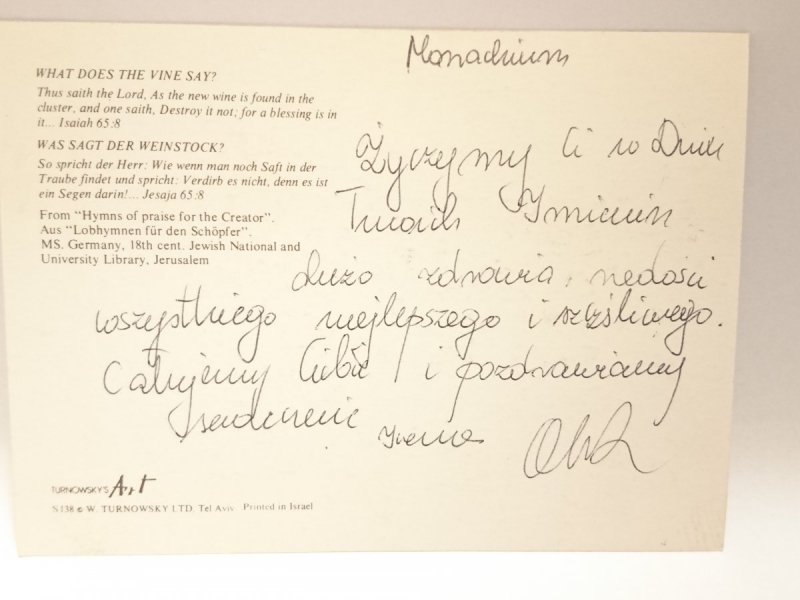 WHAT DOES THE VINE SAY?
Thus saith the Lord, As the new wine is found in the
cluster, and one saith, Destroy it not; for a blessing is in
it... Isaiah 65:8
WAS SAGT DER WEINSTOCK?
So spricht der Herr: Wie wenn man noch Saft in der
Traube findet und spricht: Verdirb es nicht, denn es ist
ein Segen darin!... Jesaja 65:8
From "Hymns of praise for the Creator".
Aus "Lobhymnen für den Schöpfer".
MS. Germany, 18th cent. Jewish National and
University Library, Jerusalem
Monachium
Życzymy Ci w Dniu
Twoich Imienin
dużo zdrowia, radości
wszystkiego najlepszego i szczęśliwego.
Całujemy Ciebie i pozdrawiamy
serdecznie
TURNOWSKY'S Art
S138 © W. TURNOWSKY LTD. Tel Aviv Printed in Israel